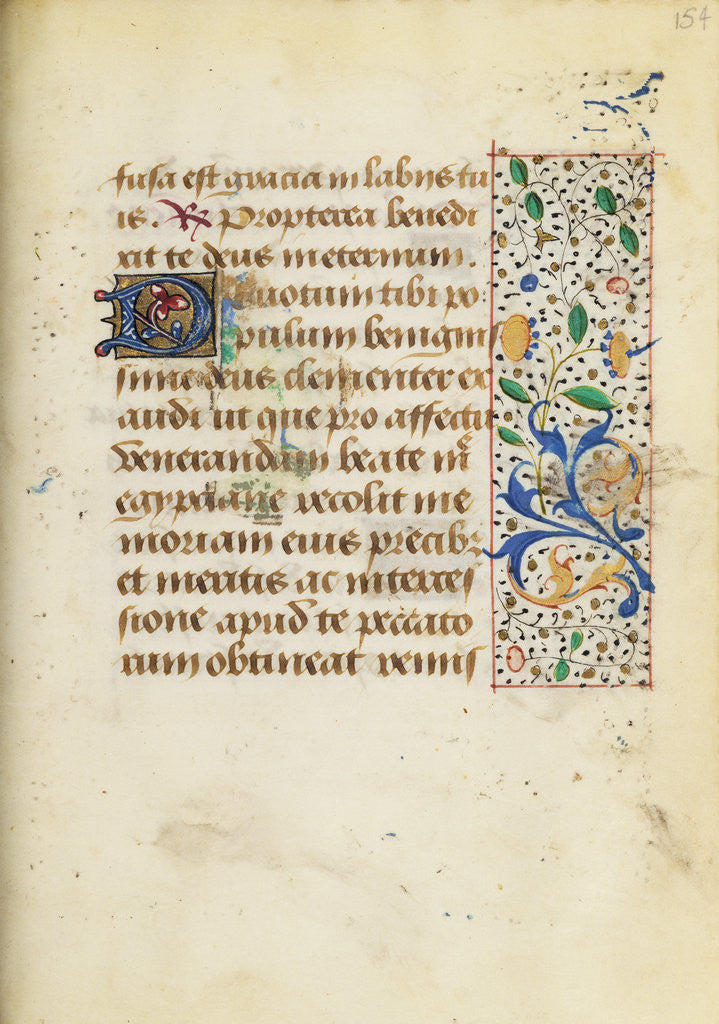 154
fusa est gracia in labijs tu
is. R Propterea benedi
xit te deus in eternum.
Deuotum tibi po
pulum benignis
sime deus clementer ex
audi ut que pro affectu
venerandam beate mr̃
egypciane recolit me
moriam eius precibꝫ
et meritis ac interces
sione apud te peccato
rum obtineat venis